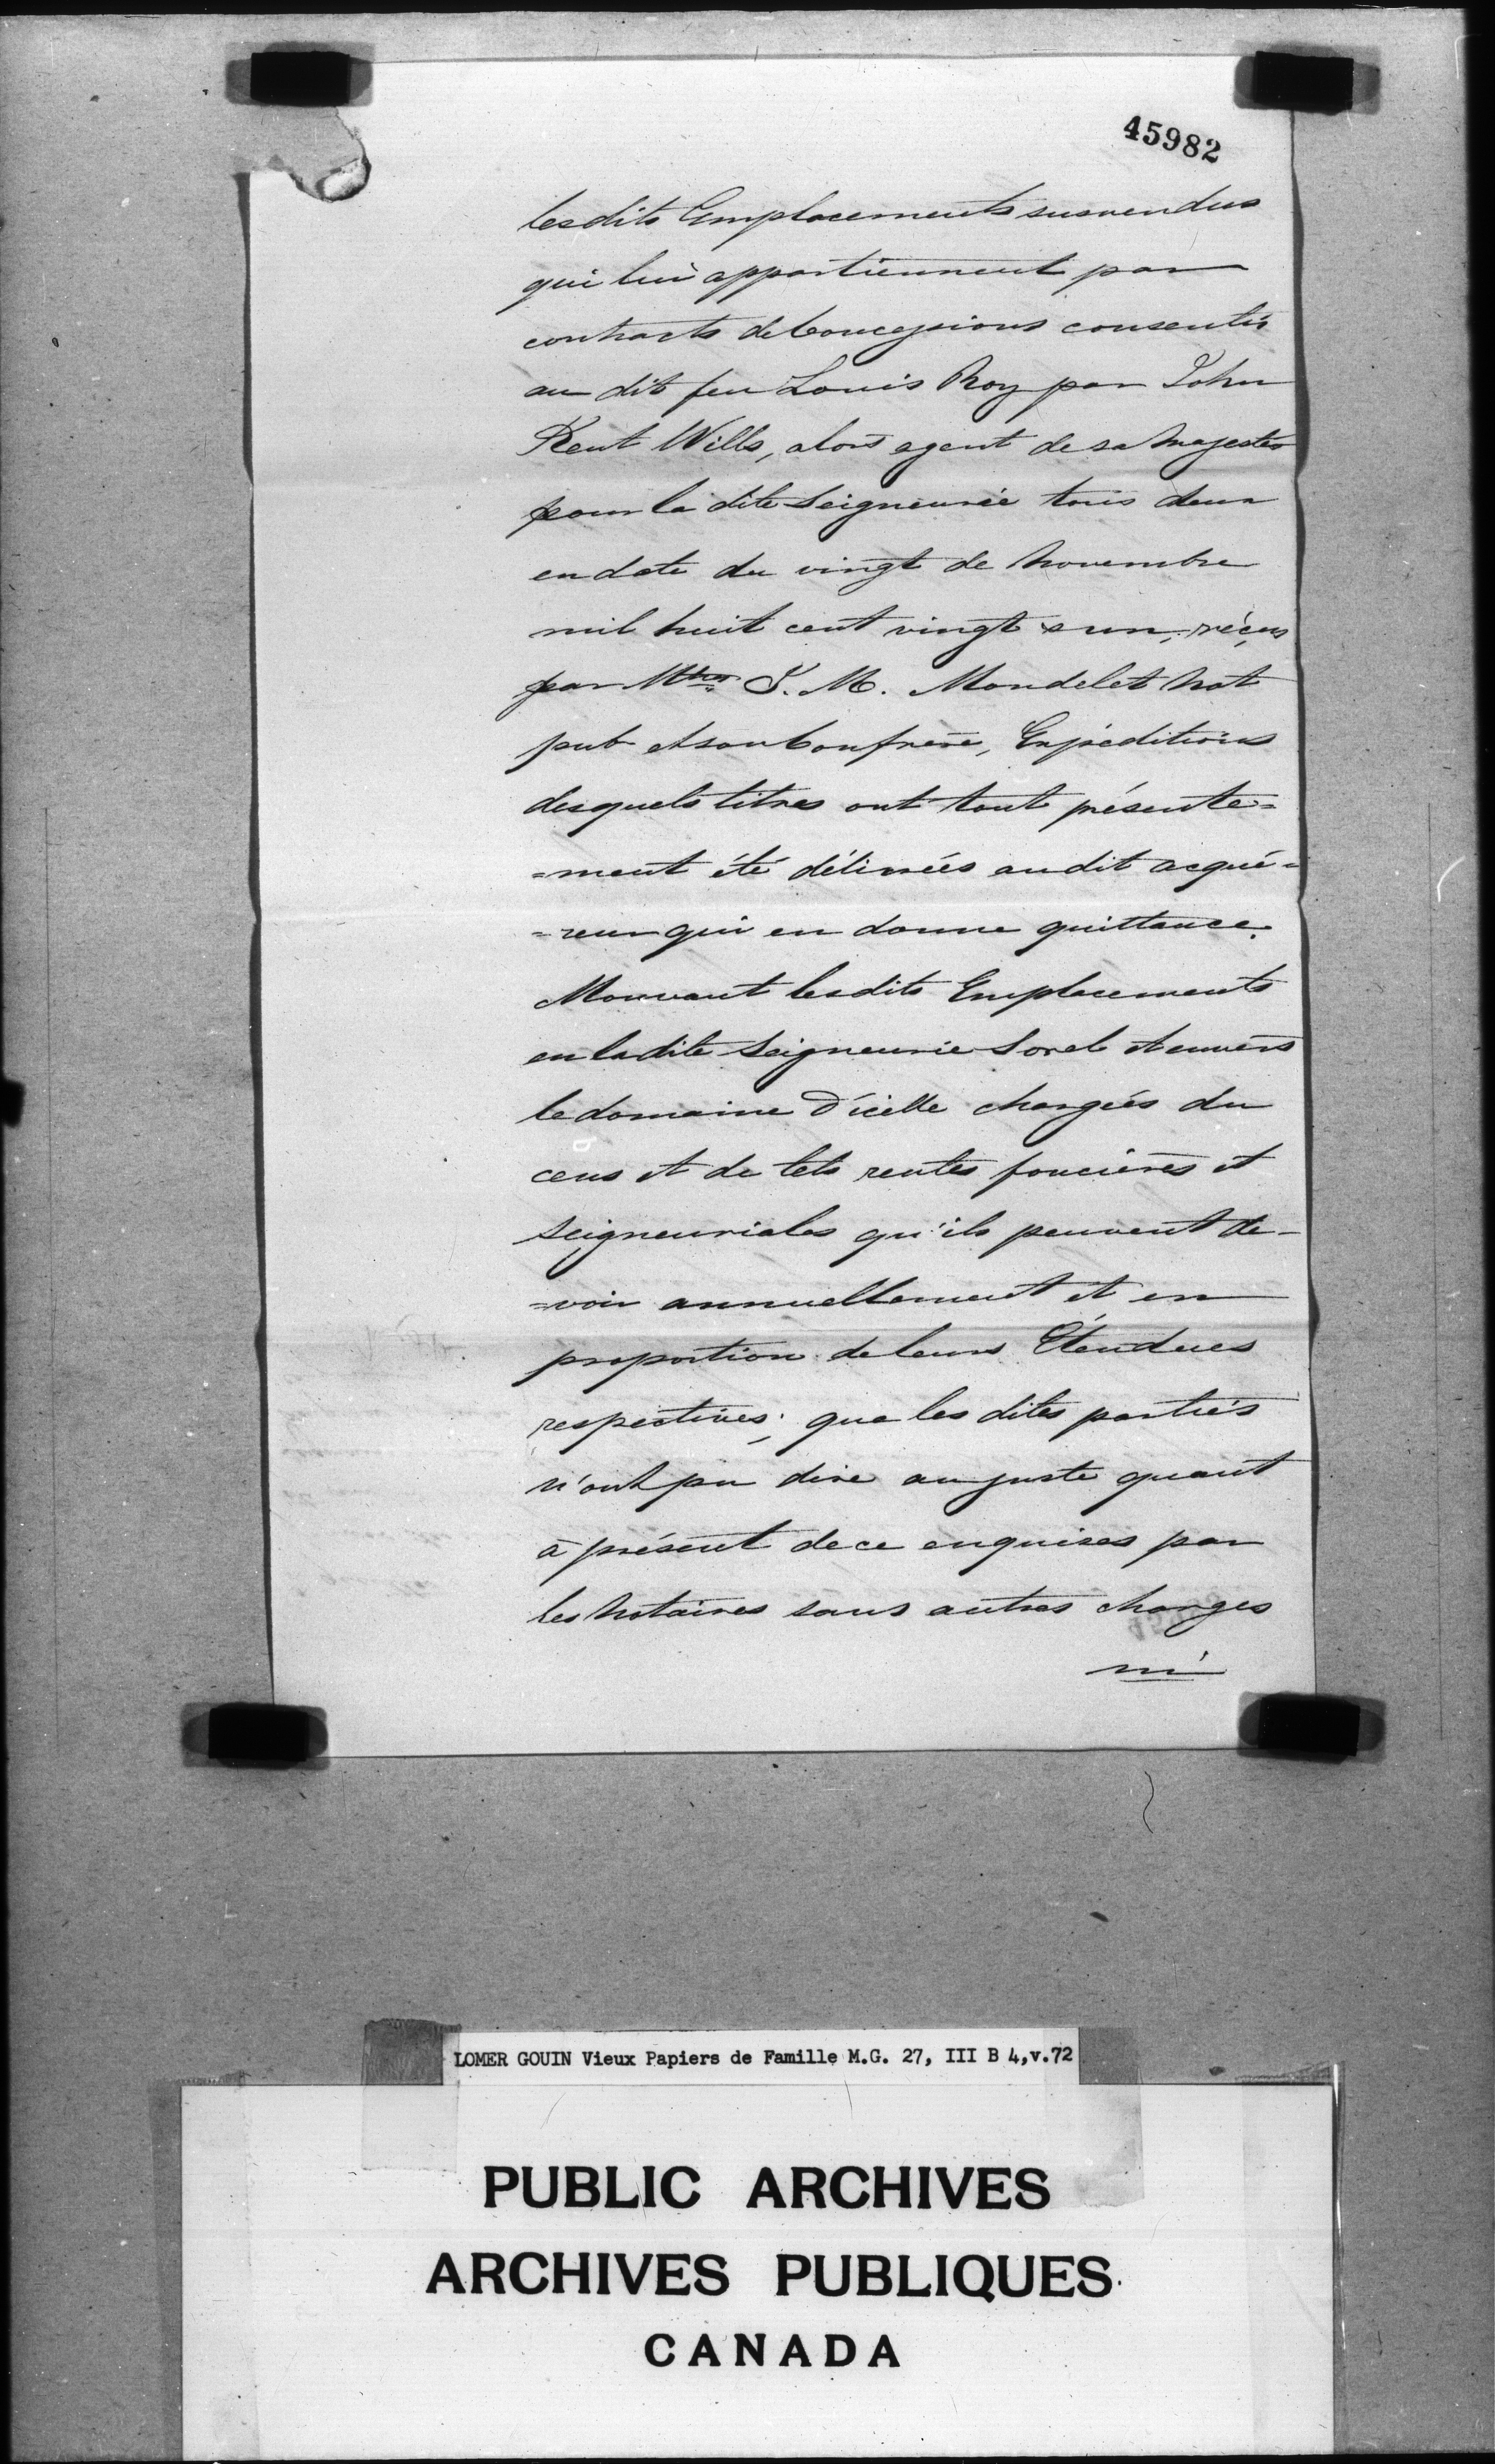 45982
les dits Emplacements susvendus
qui lui appartiennent par
contracts de Concessions consentis
au dit feu Louis Roy par John
Kent Wills, alors agent de sa Majesté
pour la dite Seigneurie tous deux
en date du vingt de Novembre
mil huit cent vingt e un, réçus
par Mtres J. M. Mondelet Not
pub et son Confrère, Expéditions
desquels titres ont tout présente=
=ment été délivrées au dit acqué=
=reur qui en donne quittance.
Mouvant les dits Emplacements
en la dite Seigneurie Sorel et envers
le domaine d'icelle chargées du
cens et de tels rentes foncières et
Seigneuriales qu'ils peuvent de-
=voir annuellement et en
proportion de leurs Étendues
respectives; que les dites parties
n'ont pu dire au juste quant
à présent de ce enquises par
les Notaires sans autres charges
ni
LOMER GOUIN Vieux Papiers de Famille M.G. 27, III B 4,v.72
PUBLIC ARCHIVES
ARCHIVES PUBLIQUES
CANADA